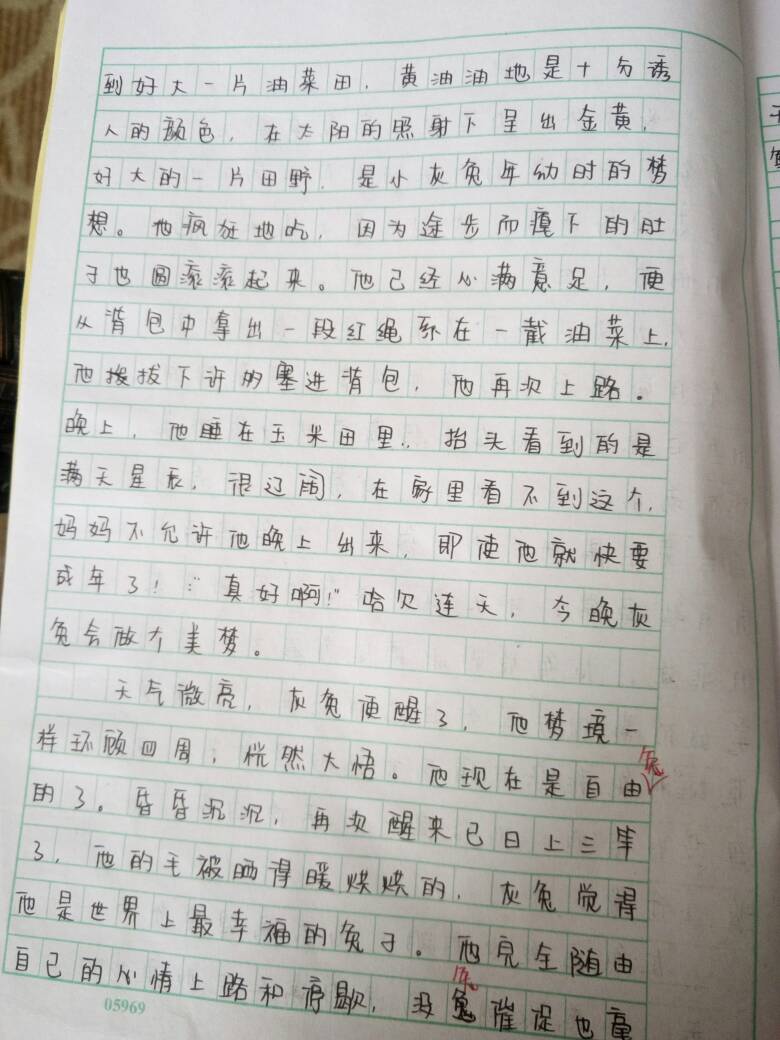 到好大一片油菜田，黄油油地是十分诱
人的颜色，在太阳的照射下呈出金黄，
好大的一片田野，是小灰兔年幼时的梦
想。他疯狂地吃，因为途步而瘪下的肚
子也圆滚滚起来。他已经心满意足，便
从背包中拿出一段红绳系在一截油菜上，
他拔下许多塞进背包，他再次上路。
晚上，他睡在玉米田里，抬头看到的是
满天星辰，很辽阔，在家里看不到这个，
妈妈不允许他晚上出来，即使他就快要
成年了！“真好啊！”哈欠连天，今晚灰
兔会做个美梦。
天气微亮，灰兔便醒了，他梦境一
样环顾四周，恍然大悟。他现在是自由
兔
的了。昏昏沉沉，再次醒来已日上三竿
了，他的毛被晒得暖烘烘的，灰兔觉得
他是世界上最幸福的兔子。他完全随由
自己的心情上路和停歇，没兔催促也毫
05969